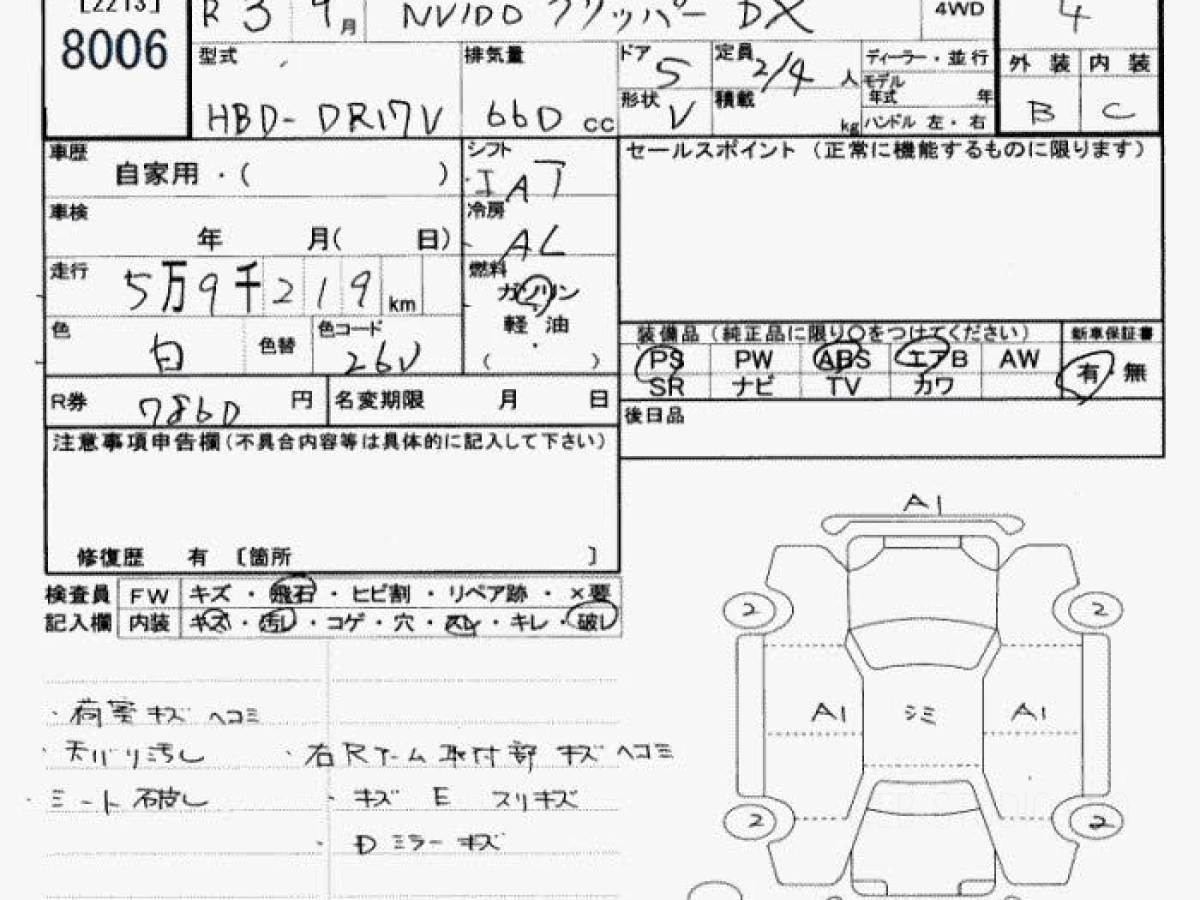 [2213]
8006
R 3 9月 NV100 クリッパー DX 4WD 4
型式 HBD-DR17V
排気量 660 cc
ドア 5
定員 2/4 人
形状 V
積載 kg
ディーラー・並行
モデル年式 年
ハンドル 左・右
外装 内装
B C
車歴 自家用・( )
シフト IAT
車検 年 月( 日)
冷房 AC
走行 5万9千219km
燃料 ガソリン
軽油
( )
色 白 色替 色コード 26V
R券 7860円 名変期限 月 日
セールスポイント(正常に機能するものに限ります)
装備品(純正品に限り○をつけてください) 新車保証書
PS PW ABS エアB AW 有・無
SR ナビ TV カワ
後日品
注意事項申告欄(不具合内容等は具体的に記入して下さい)
修復歴 有 〔箇所 〕
検査員 FW キズ・飛石・ヒビ割・リペア跡・×要
記入欄 内装 キズ・汚れ・コゲ・穴・スレ・キレ・破れ
・荷室 キズ ヘコミ
・天バリ汚れ ・右Rアーム取付部 キズ ヘコミ
・シート破れ ・キズ E スリキズ
・Dミラーキズ
A1
2 2
A1 シミ A1
2 2